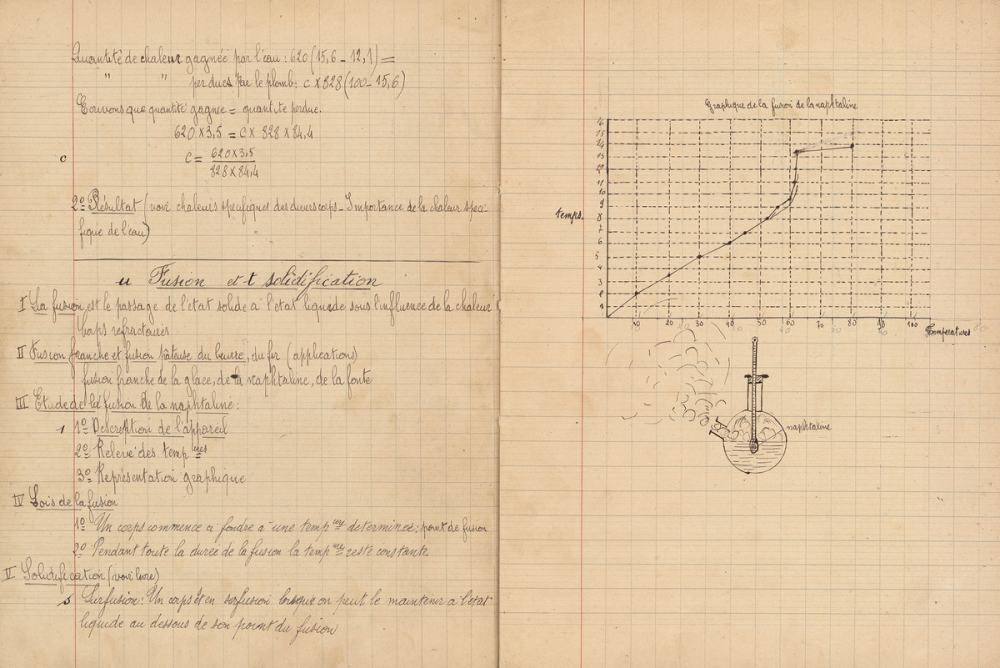 Quantité de chaleur gagnée par l'eau : 620 (15,6 - 12,1) =
" " perdues par le plomb : c x 828 (100 - 15,6)
Ecrivons que quantité gagnée = quantité perdue.
620 x 3,5 = c x 828 x 84,4
c
c = 620 x 3,5
828 x 84,4
2º Résultat (voir chaleurs spécifiques des divers corps - Importance de la chaleur spéci-
fique de l'eau)
Fusion et solidification
I La fusion est le passage de l'état solide à l'état liquide sous l'influence de la chaleur
Corps réfractaires
II Fusion franche et fusion pâteuse du beurre, du fer (applications)
fusion franche de la glace, de la naphtaline, de la fonte
III Etude de la fusion de la naphtaline :
1º Description de l'appareil
2º Relevé des temp ures
3º Représentation graphique
IV Lois de la fusion
1º Un corps commence à fondre à une temp ure déterminée : point de fusion
2º Pendant toute la durée de la fusion la temp ure reste constante
V Solidification (voir livre)
Surfusion : Un corps est en surfusion lorsque on peut le maintenir à l'état
liquide au dessous de son point du fusion
Graphique de la fusion de la naphtaline
16
15
14
13
12
11
10
9
8
7
6
5
4
3
2
1
temps.
10 20 30 40 50 60 70 80 90 100 Températures
naphtaline